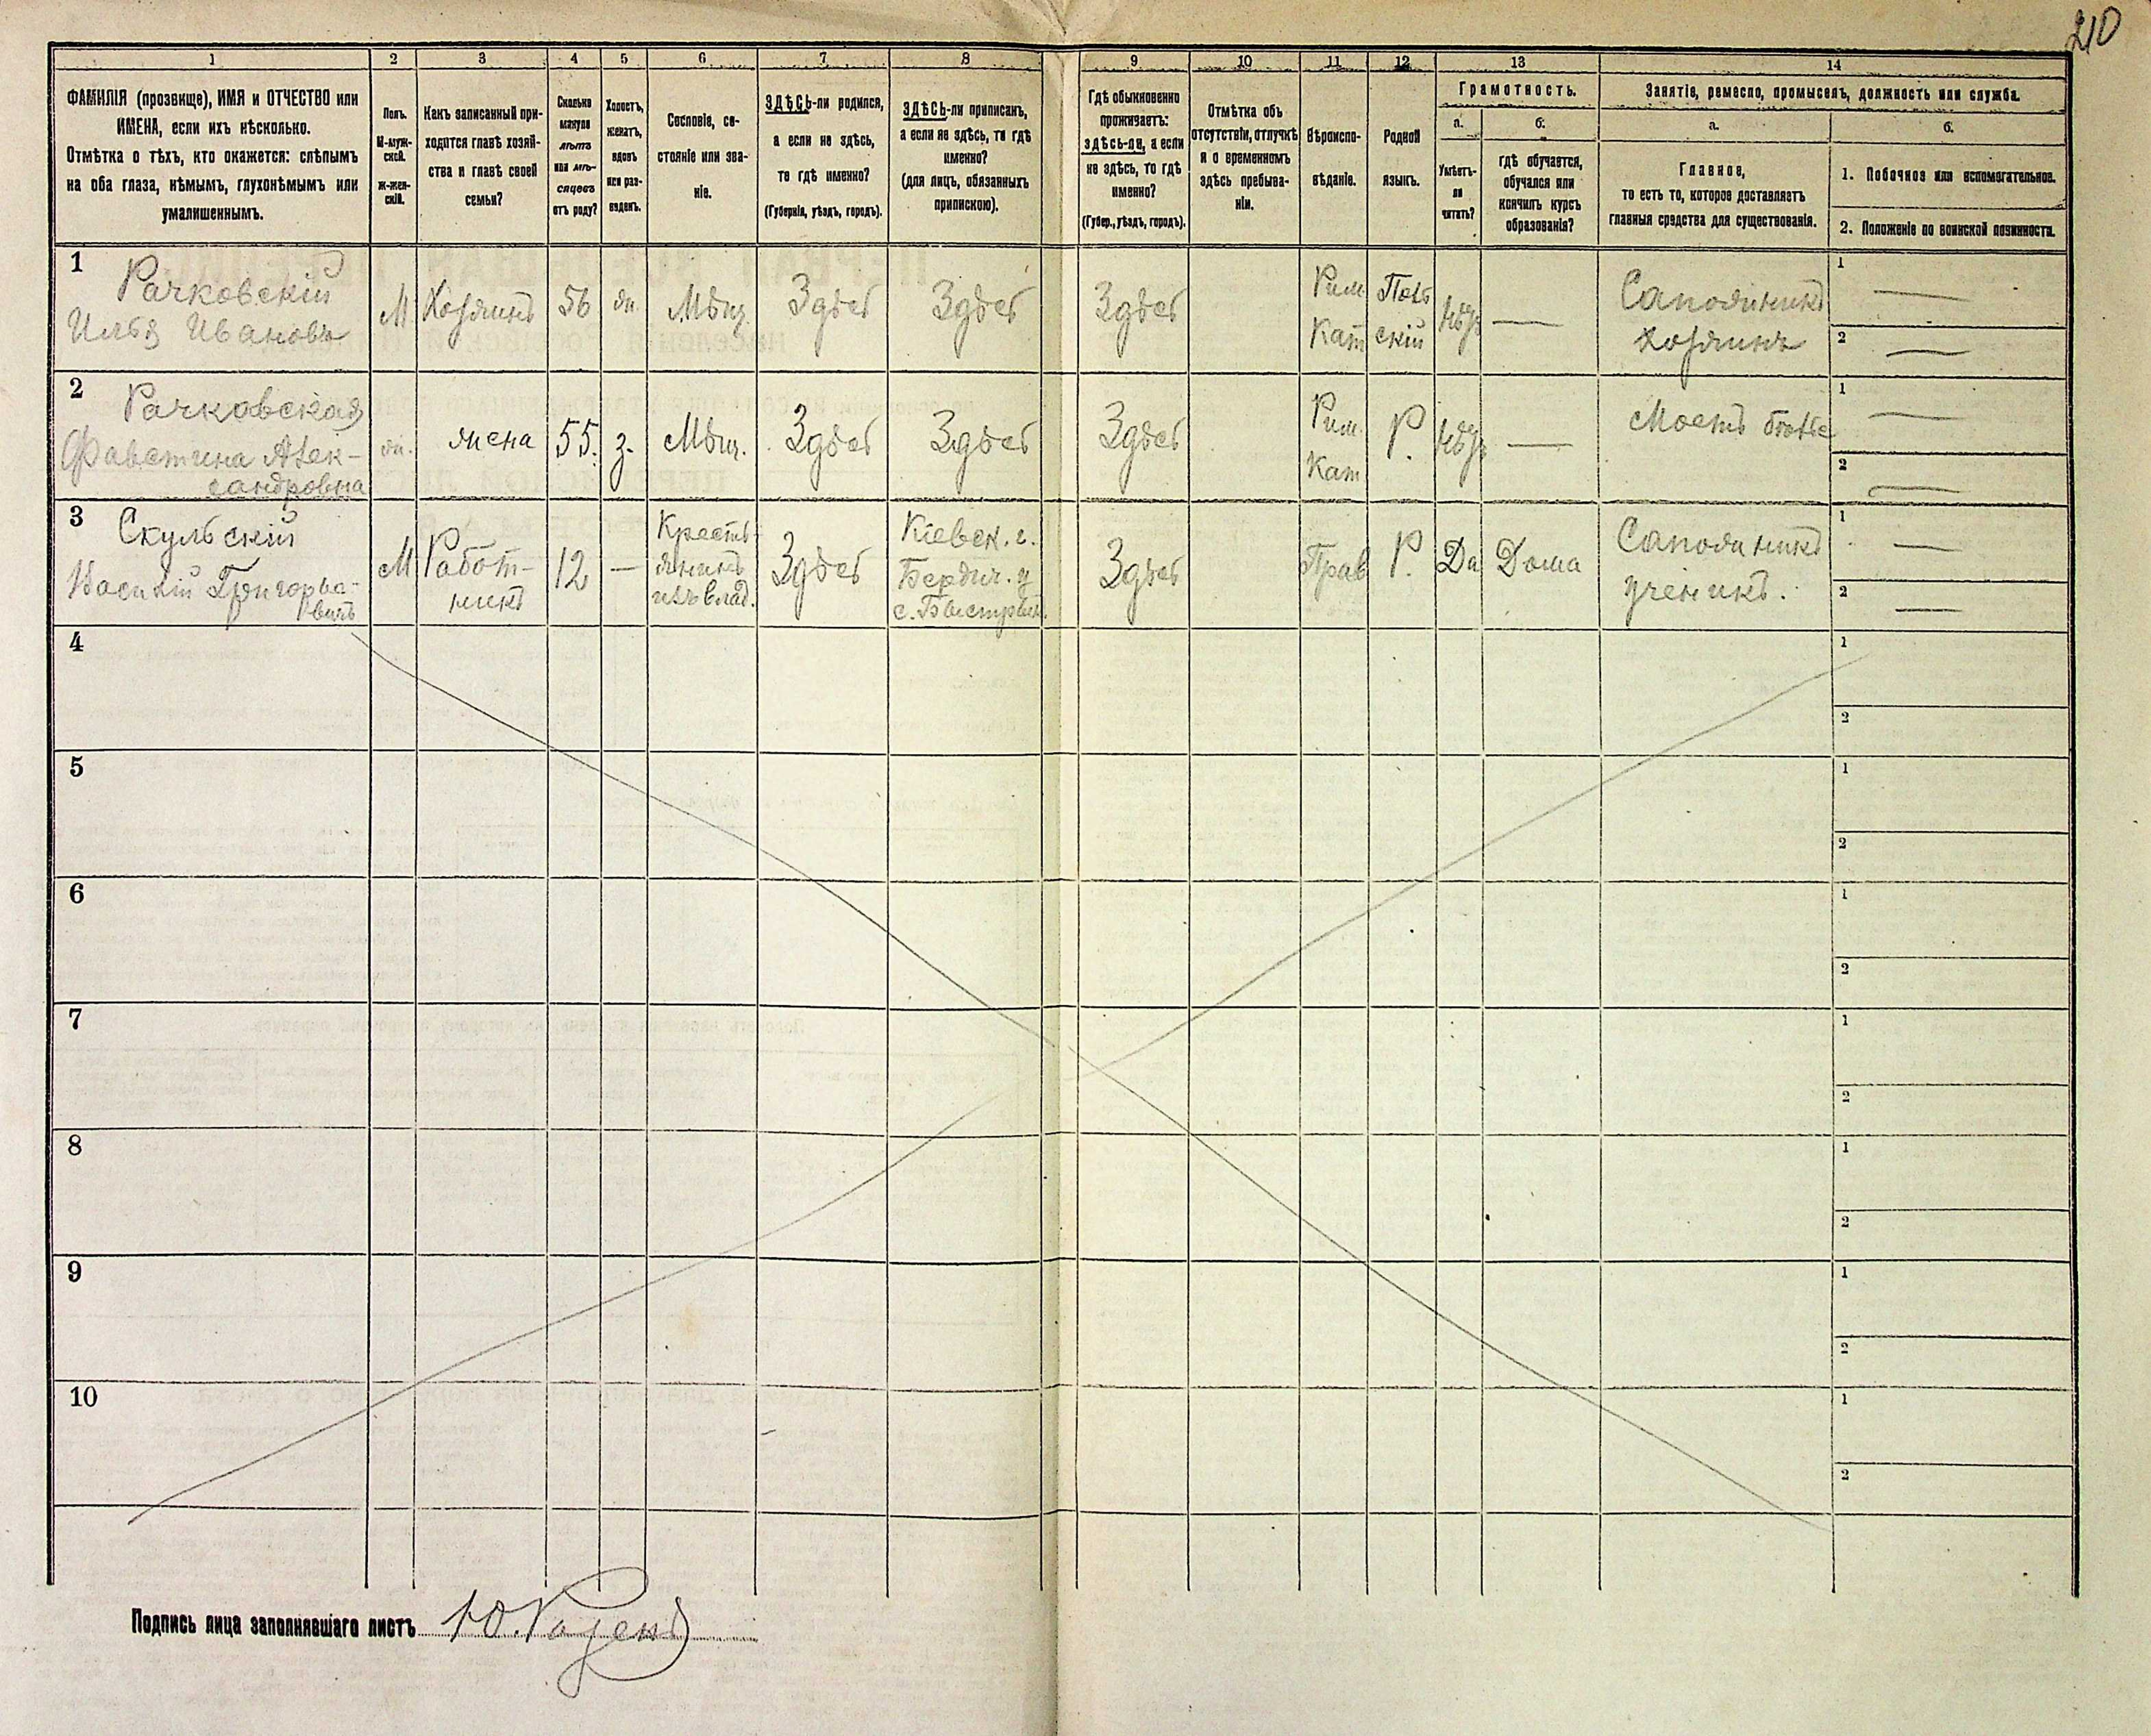 210
1 2 3 4 5 6 7 8 9 10 11 12 13 14
ФАМИЛІЯ (прозвище), ИМЯ и ОТЧЕСТВО или
ИМЕНА, если ихъ нѣсколько.
Отмѣтка о тѣхъ, кто окажется: слѣпымъ
на оба глаза, нѣмымъ, глухонѣмымъ или
умалишеннымъ.
Полъ.
М-муж-
ской.
ж-жен-
скій.
Какъ записанный при-
ходится главѣ хозяй-
ства и главѣ своей
семьи?
Сколько
минуло
лѣтъ
или мѣ-
сяцевъ
отъ роду?
Холостъ,
женатъ,
вдовъ
или раз-
веденъ.
Сословіе, со-
стояніе или зва-
ніе.
ЗДѢСЬ-ли родился,
а если не здѣсь,
то гдѣ именно?
(Губернія, уѣздъ, городъ).
ЗДѢСЬ-ли приписанъ,
а если не здѣсь, то гдѣ
именно?
(для лицъ, обязанныхъ
припискою).
Гдѣ обыкновенно
проживаетъ:
здѣсь-ли, а если
не здѣсь, то гдѣ
именно?
(Губер., уѣздъ, городъ).
Отмѣтка объ
отсутствіи, отлучкѣ
и о временномъ
здѣсь пребыва-
ніи.
Вѣроиспо-
вѣданіе.
Родной
языкъ.
Грамотность.
а.
Умѣетъ-
ли
читать?
б.
гдѣ обучается,
обучался или
кончилъ курсъ
образованія?
Занятіе, ремесло, промыселъ, должность или служба.
а.
Главное,
то есть то, которое доставляетъ
главныя средства для существованія.
б.
1. Побочное или вспомогательное.
2. Положеніе по воинской повинности.
1
Рачковскій
Илья Ивановъ
М
Хозяинъ
56
жн.
Мѣщ.
Здѣсь
Здѣсь
Здѣсь
Рим
Кат
Поль
скій
—
Сапожникъ
хозяинъ
1 —
2 —
2
Рачковская
Фавстина Алек-
сандровна
ж.
жена
55.
з.
Мѣщ.
Здѣсь
Здѣсь
Здѣсь
Рим.
Кат
Р.
—
1 —
2 —
3
Скульскій
Василій Григорье-
вичъ
М
Работ-
никъ
12
—
Кресть-
янинъ
изъ влад.
Здѣсь
Кіевск. г.
Бердич. у
с. Быстрик.
Здѣсь
Прав
Р.
Да
Дома
Сапожникъ
ученикъ.
1 —
2 —
4
1
2
5
1
2
6
1
2
7
1
2
8
1
2
9
1
2
10
1
2
Подпись лица заполнявшаго листъ